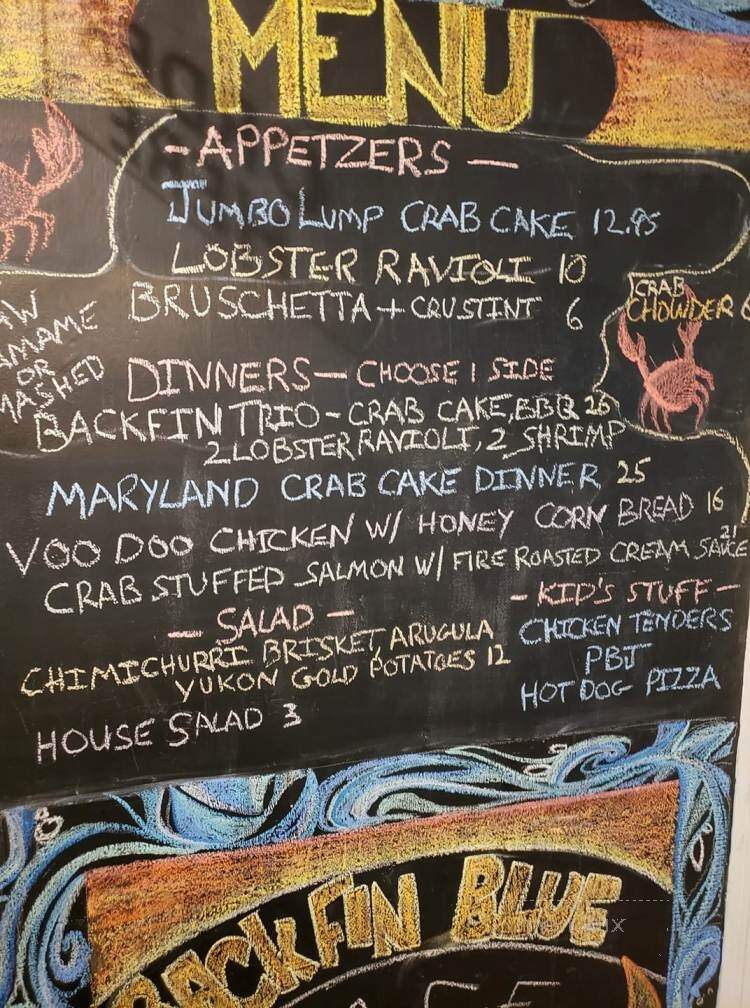 MENU
-APPETZERS-
JUMBO LUMP CRAB CAKE 12.95
LOBSTER RAVIOLI 10
BRUSCHETTA + CRUSTINT 6
CRAB
CHOWDER
OR
MASHED
DINNERS- CHOOSE 1 SIDE
BACKFIN TRIO - CRAB CAKE, BBQ 26
2 LOBSTER RAVIOLI, 2 SHRIMP
MARYLAND CRAB CAKE DINNER 25
VOO DOO CHICKEN W/ HONEY CORN BREAD 16
CRAB STUFFED SALMON W/ FIRE ROASTED CREAM SAUCE 21
- SALAD -
CHIMICHURRI BRISKET, ARUGULA
YUKON GOLD POTATOES 12
HOUSE SALAD 3
- KID'S STUFF -
CHICKEN TENDERS
PBJ
HOT DOG PIZZA
BACKFIN BLUE